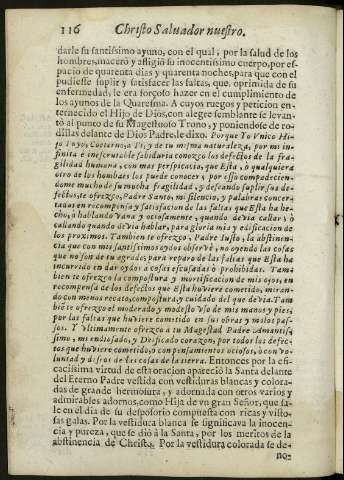 116 Christo Salvador nuestro.
darle su santissimo ayuno, con el qual, por la salud de los
hombres, maceró y afligió su inocentissimo cuerpo, por es-
pacio de quarenta dias y quarenta noches, para que con el
pudiesse suplir y satisfacer las faltas, que oprimida de su
enfermedad, le era forçoso hazer en el cumplimiento de
los ayunos de la Quaresma. A cuyos ruegos y peticion en-
ternecido el Hijo de Dios, con alegre semblante se levan-
tó al punto de su Magestuoso Trono, y poniendose de ro-
dillas delante de Dios Padre, le dixo. Porque Yo Vnico Hi-
jo Tuyo, Coeterno à Ti, y de tu misma naturaleza, por mi in-
finita è inescrutable sabiduria conozco los defectos de la fra-
gilidad humana, con mas perspicacia, que Esta, ò qualquiera
otro de los hombres los puede conocer; por esso compadecien-
dome mucho de su mucha fragilidad, y deseando suplir sus de-
fectos, te ofrezco, Padre Santo, mi silencio, y palabras concer-
tadas en recompensa y satisfacion de las faltas que Esta ha he-
cho, ò hablando vana y ociosamente, quando devia callar; ò
callando quando devia hablar, para gloria mia y edificacion de
los proximos. Tambien te ofrezco, Padre Iusto, la abstinen-
cia que con mis santissimos oydos observè, no oyendo las cosas
que no son de tu agrado, para reparo de las faltas que Esta ha
incurrido en dar oydos a cosas escusadas ò prohibidas. Tam-
bien te ofrezco la compostura y mortificacion de mis ojos, en
recompensa de los defectos que Esta huviere cometido, miran-
do con menos recato, compostura, y cuidado del que devia. Tam
biẽ te ofrezco el moderado y modesto vso de mis manos y pies,
por las faltas que huviere cometido en sus obras y malos pas-
sos. Y vltimamente ofrezco a tu Magestad Padre Amantis-
simo, mi endiosado, y Deificado corazon, por todos los defec-
tos que huviere cometido, ò con pensamientos ociosos, ò con vo-
luntad y deseos de las cosas de la tierra. Entonces por la efi-
cacissima virtud de esta oracion apareció la Santa delante
del Eterno Padre vestida con vestiduras blancas y colora-
das de grande hermosura, y adornada con otros varios y
admirables adornos, como Hija de vn gran Señor, que sa-
le en el dia de su desposorio compuesta con ricas y visto-
sas galas. Por la vestidura blanca se significava la inocen-
cia y pureza, que se diò à la Santa, por los meritos de la
abstinencia de Christo. Por la vestidura colorada se de-
no-